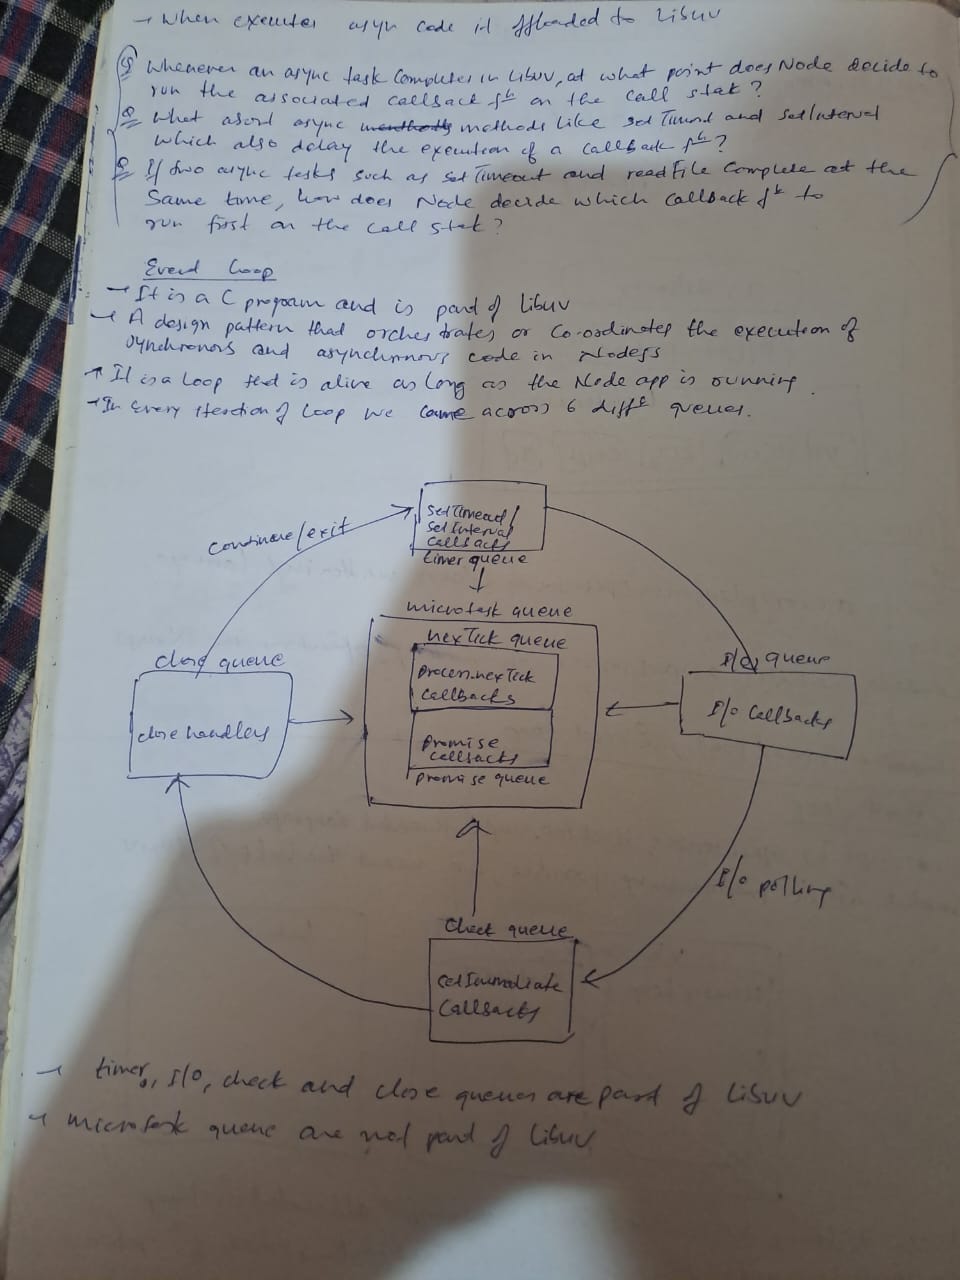 → When executes asyn code it offloaded to Libuv
Q Whenever an async task completes in Libuv, at what point does Node decide to
run the associated callback fn on the call stak?
Q What about async methods like setTimeout and setInterval
which also delay the execution of a callback fn?
Q If two async tasks such as setTimeout and readFile complete at the
same time, how does Node decide which callback fn to
run first on the call stak?
Event Loop
→ It is a C program and is part of libuv
→ A design pattern that orchestrates or co-ordinates the execution of
synchronous and asynchronous code in Nodejs
→ It is a loop that is alive as long as the Node app is running.
→ In every iteration of loop we came across 6 diffn queues.
continue/exit
setTimeout/
setInterval
callbacks
timer queue
microtask queue
nexTick queue
process.nexTick
callbacks
promise
callbacks
promise queue
close queue
close handlers
I/o queue
I/o callbacks
I/o polling
Check queue
setImmediate
Callbacks
→ timer, I/o, check and close queues are part of libuv
→ microtask queue are not part of libuv